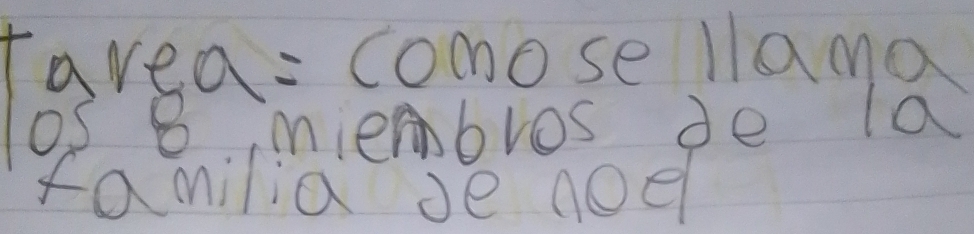 tarea= como se llama
los 8 miembros de la
familia de noe